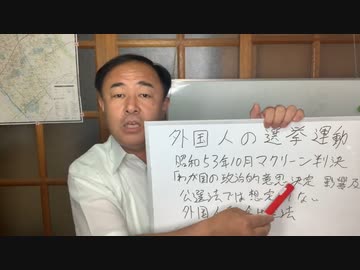 外国人の選挙運動
昭和53年10月マクリーン判決
「わが国の政治的意思決定 影響及
公選法では想定 ない
外国人 法